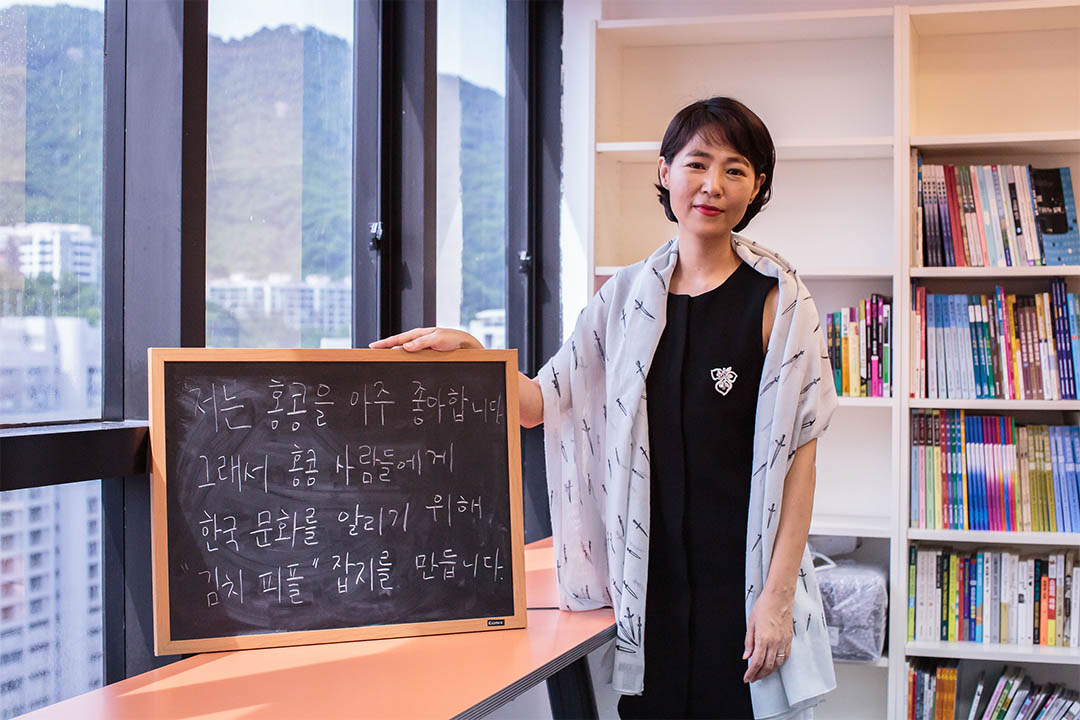 저는 홍콩을 아주 좋아합니다.
그래서 홍콩 사람들에게
한국 문화를 알리기 위해
"김치 피플" 잡지를 만듭니다.